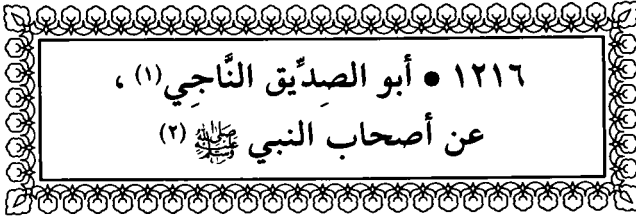 ١٢١٦ • أبو الصِدِّيق النَّاجِي(١)،
عن أصحاب النبي ﷺ (٢)